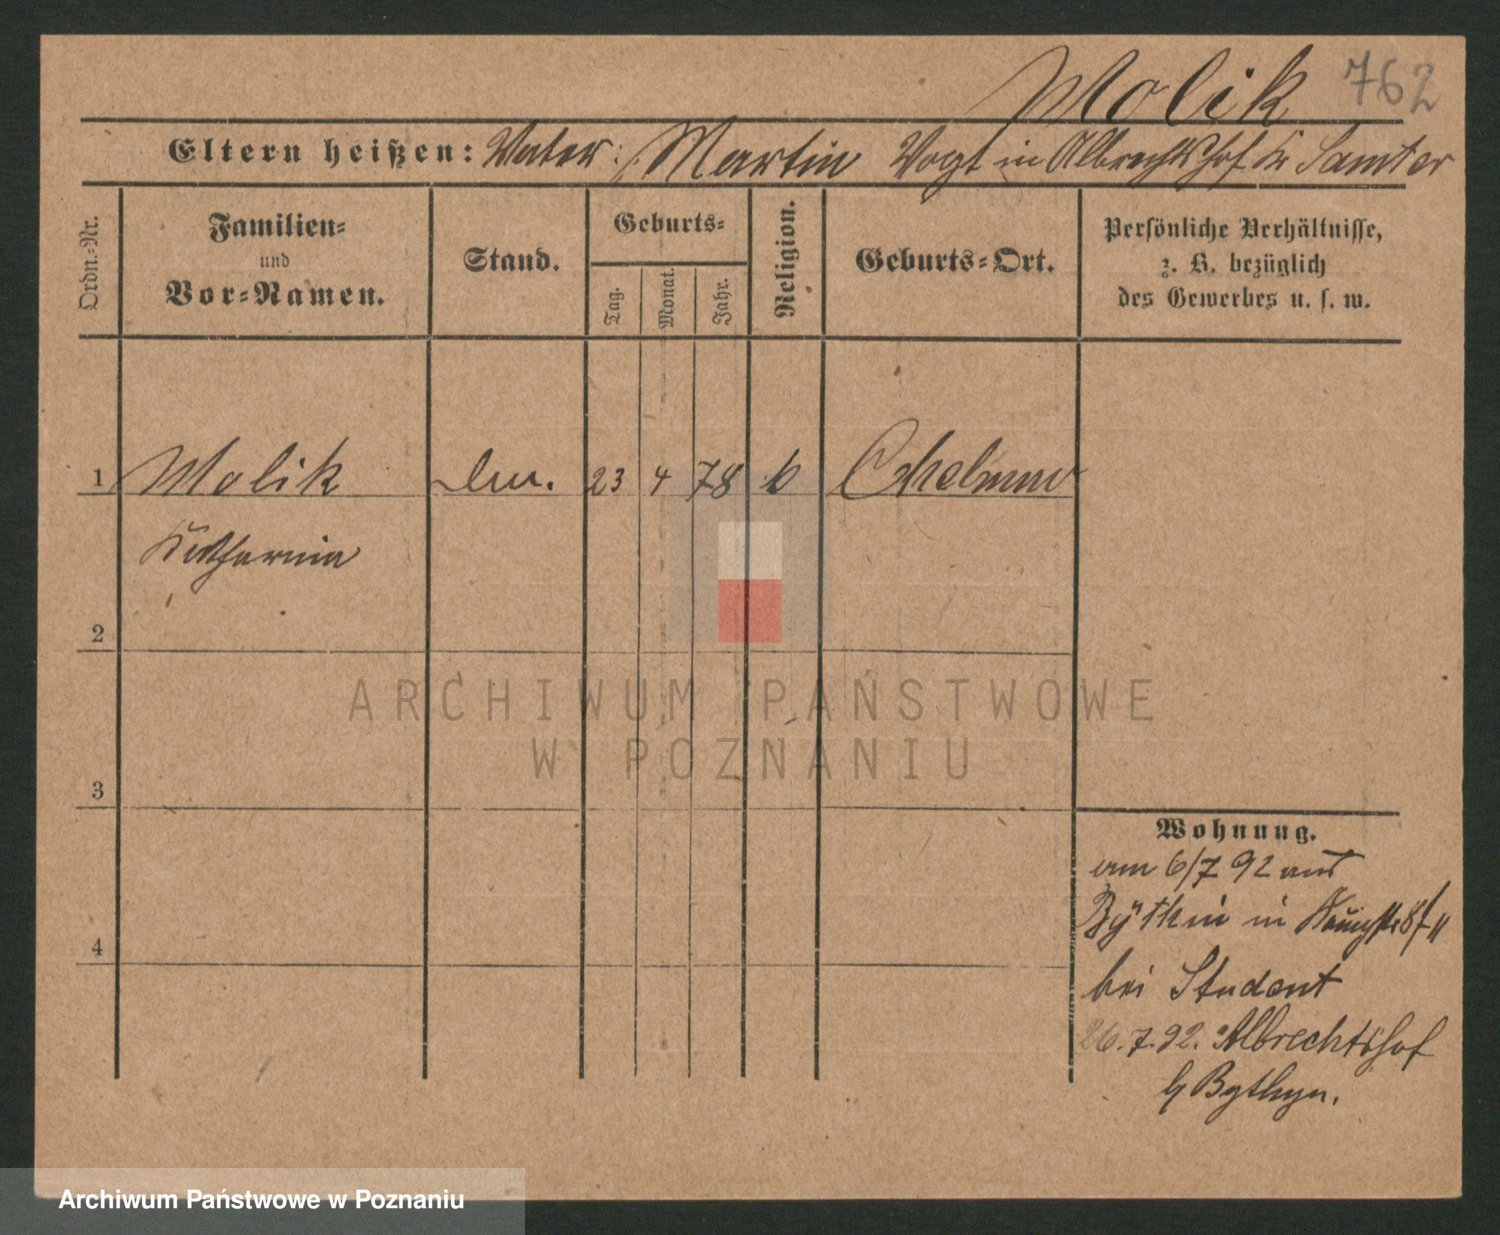 Molik 762
Eltern heißen: Vater: Martin Vogt in Albrechtshof Kr Samter
Ordn.-Nr.
Familien-
und
Vor-Namen.
Stand.
Geburts-
Tag.
Monat.
Jahr.
Religion.
Geburts-Ort.
Persönliche Verhältnisse,
z. B. bezüglich
des Gewerbes u. s. w.
1 Molik 23 4 78 Chelmno
Katharina
2
3
4
Wohnung.
am 6/7 92 aus
Bythin in
bei Student
26.7.92. Albrechtshof
b Bythyn.
ARCHIWUM PAŃSTWOWE
W POZNANIU
Archiwum Państwowe w Poznaniu